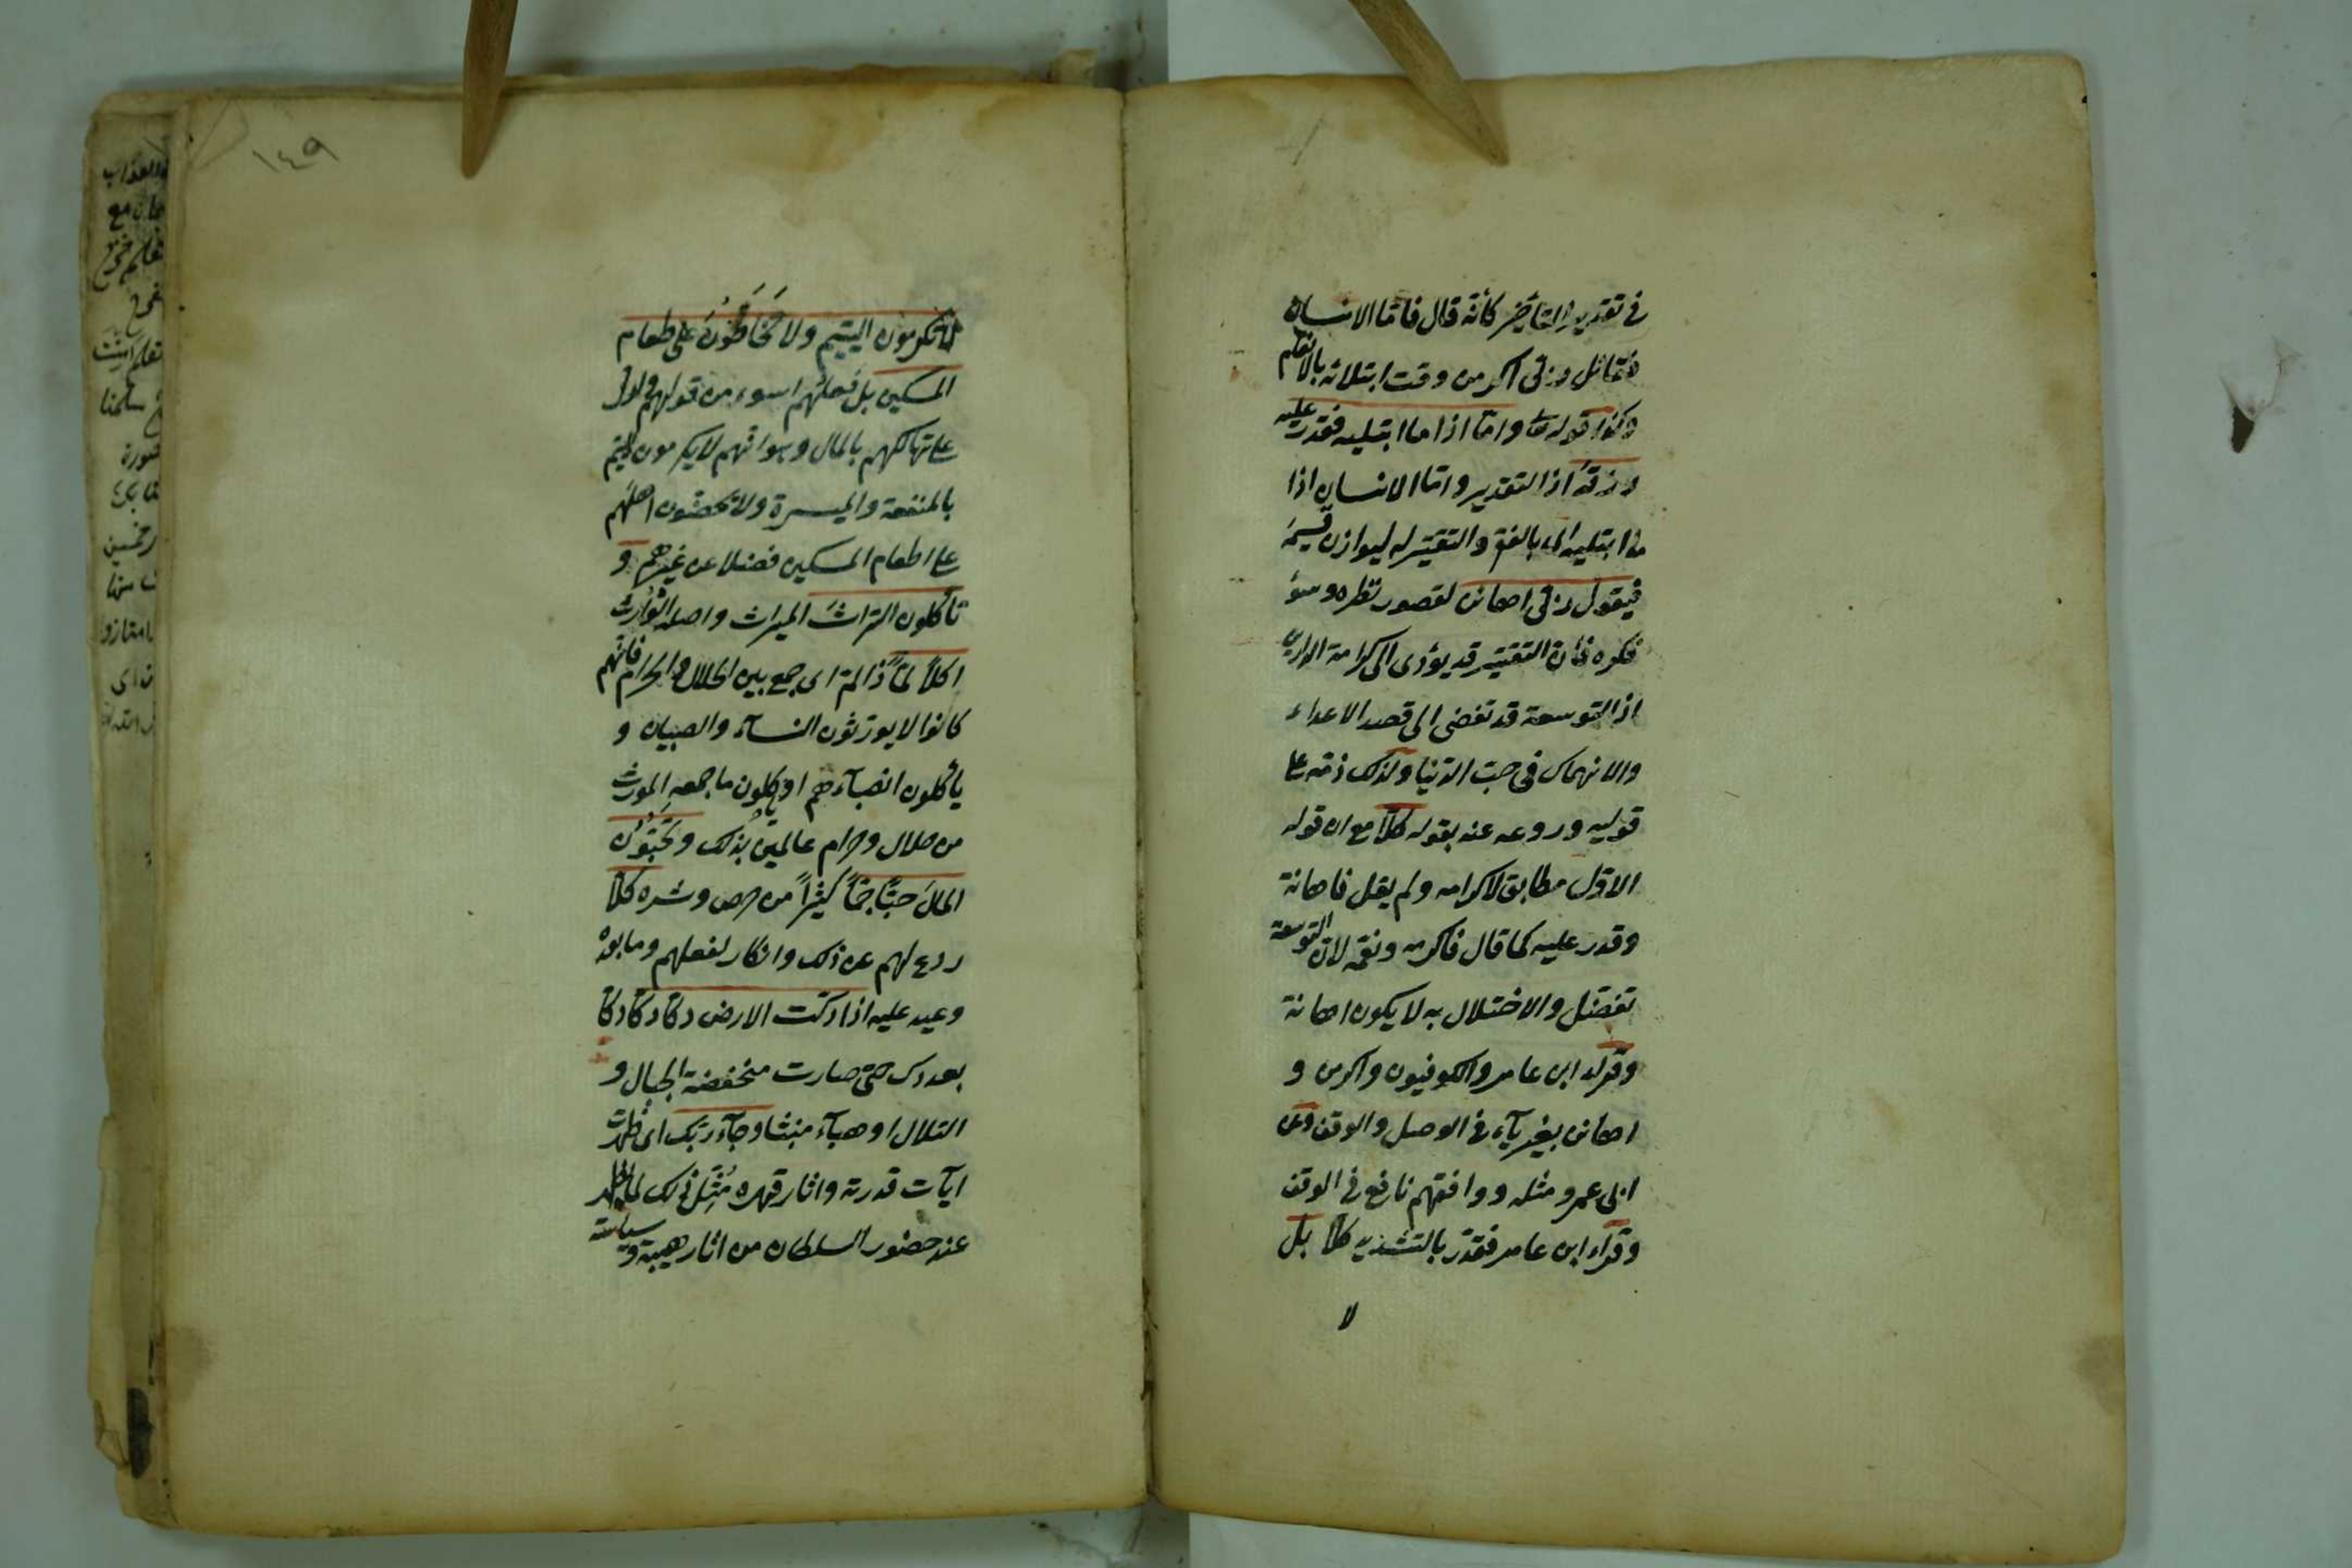 في تقدير التأخير كأنه قال فاما الانسان
فقائل ربي اكرمن وقت ابتلائه بالانعام
وكذا قوله تعا واما اذا ما ابتليه فقدر عليه
رزقه اذ التقدير واما الانسان اذا
ما ابتليه اى بالفقر والتقتير له ليوازن قسيمه
فيقول ربي اهانن لقصور نظره وسوء
فكره فان التقتير قد يؤدى الى كرامة الدارين
اذ التوسعة قد تفضى الى قصد الاعداء
والانهماك في حب الدنيا ولذلك ذمه على
قوليه وردعه عنه بقوله كلا مع ان قوله
الاول مطابق لاكرمه ولم يقل فاهانه
وقدر عليه كما قال فاكرمه ونعمه لان التوسعة
تفضل والاختلال به لا يكون اهانة
وقراء ابن عامر والكوفيون واكرمن و
اهانن بغير يآء في الوصل والوقف وعن
ابى عمرو مثله ووافقهم نافع في الوقف
وقراء ابن عامر فقدر بالتشديد كلا بل
لا
١٤٩
لا تكرمون اليتيم ولا تَحَاضُّونَ على طعام
المسكين بل فعلهم اسوء من قولهم وادل
على تهالكهم بالمال وهو انهم لا يكرمون اليتيم
بالمنفعة والميسرة ولا يحضون اهلهم
على اطعام المسكين فضلا عن غيرهم و
تأكلون التراث الميراث واصله الوراث
اكلاً لمّاً ذا لمّ اى جمع بين الحلال والحرام فانهم
كانوا لا يورثون النسآء والصبيان و
يأكلون انصبآءهم او يأكلون ما جمعه المورث
من حلال وحرام عالمين بذلك وتحبّون
المال حبّاً جمّاً كثيراً من حرص وشره كلا
ردع لهم عن ذلك وانكار لفعلهم وما بعده
وعيد عليه اذا دكت الارض دكا دكا دكا
بعد دك حتى صارت منخفضة الجبال و
التلال او هبآء منبثا وجآء ربك اى ظهرت
آيات قدرته واثار قهره مُثِّل ذلك لما يظهر
عند حضور السلطان من اثار هيبته وسياسته